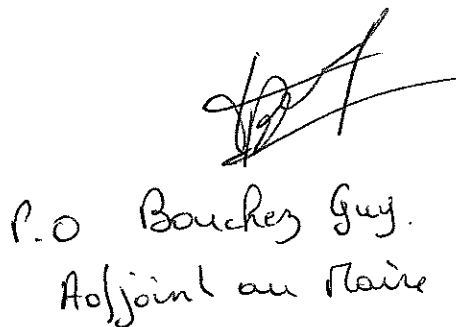 P.O Bouchez Guy.
Adjoint au Maire